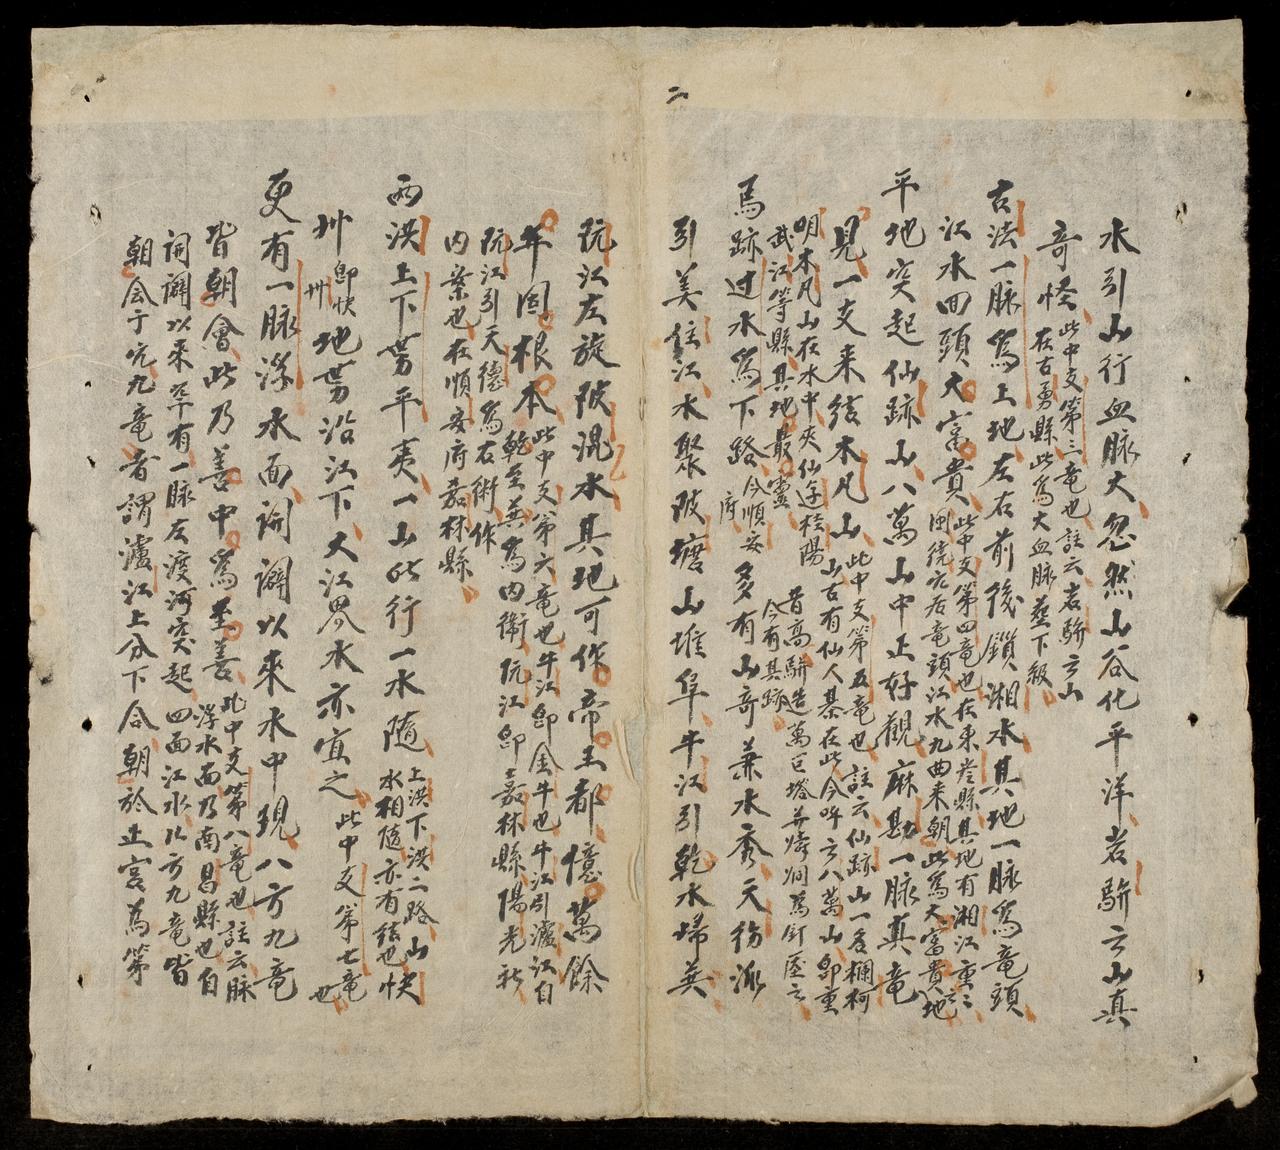 二
水引山行血脉大忽然山谷化平洋岩騈云山真
奇怪
此中支第三竜也註云岩騈云山
在古勇縣此爲大血脉墓下級
古法一脉爲上地左右前後鎖湘水其地一脉爲竜頭
江水回頭大富貴
此中支第四竜也在東岸縣其地有湘江重〻
回繞左右竜頭江水九曲来朝此爲大富貴地〻
平地突起仙跡山八萬山中正好觀麻勘一脉真竜
見一支来結木凡山
此中支第五竜也註云仙跡山一名欄柯
山古有仙人棊在此今呼云八萬山卽董
明木凡山在水中夾仙遊桂陽
武江等縣其地最靈
昔高騈造萬巨塔并
今有其跡
馬跡过水爲下路
今順安
府
多有山奇兼水秀天
引美註江水聚陂塘山堆阜牛江引乾水歸巽
阮江左旋陂混水其地可作帝王都億萬餘
年固根本
此中支第六竜也牛江卽金牛也牛江引瀘江自
乾至巽爲内衛阮江卽嘉林縣陽光社
阮江引天德爲右衛作
内案也在順安府嘉林縣
两洪上下势平夷一山行一水隨
上洪下洪二路山快
水相隨亦有結也
州
卽快
州
地势沿江下大江界水亦宜之
此中支第七竜
也
更有一脉浮水面開闢以來水中現八方九竜
皆朝會此乃善中爲至善
此中支第八竜也註云脉
浮水面乃南昌縣也自
開闢以來平有一脉左渡河突起四面江水八方九竜皆
朝会于
九竜者謂瀘江上分下合朝於正宫爲第